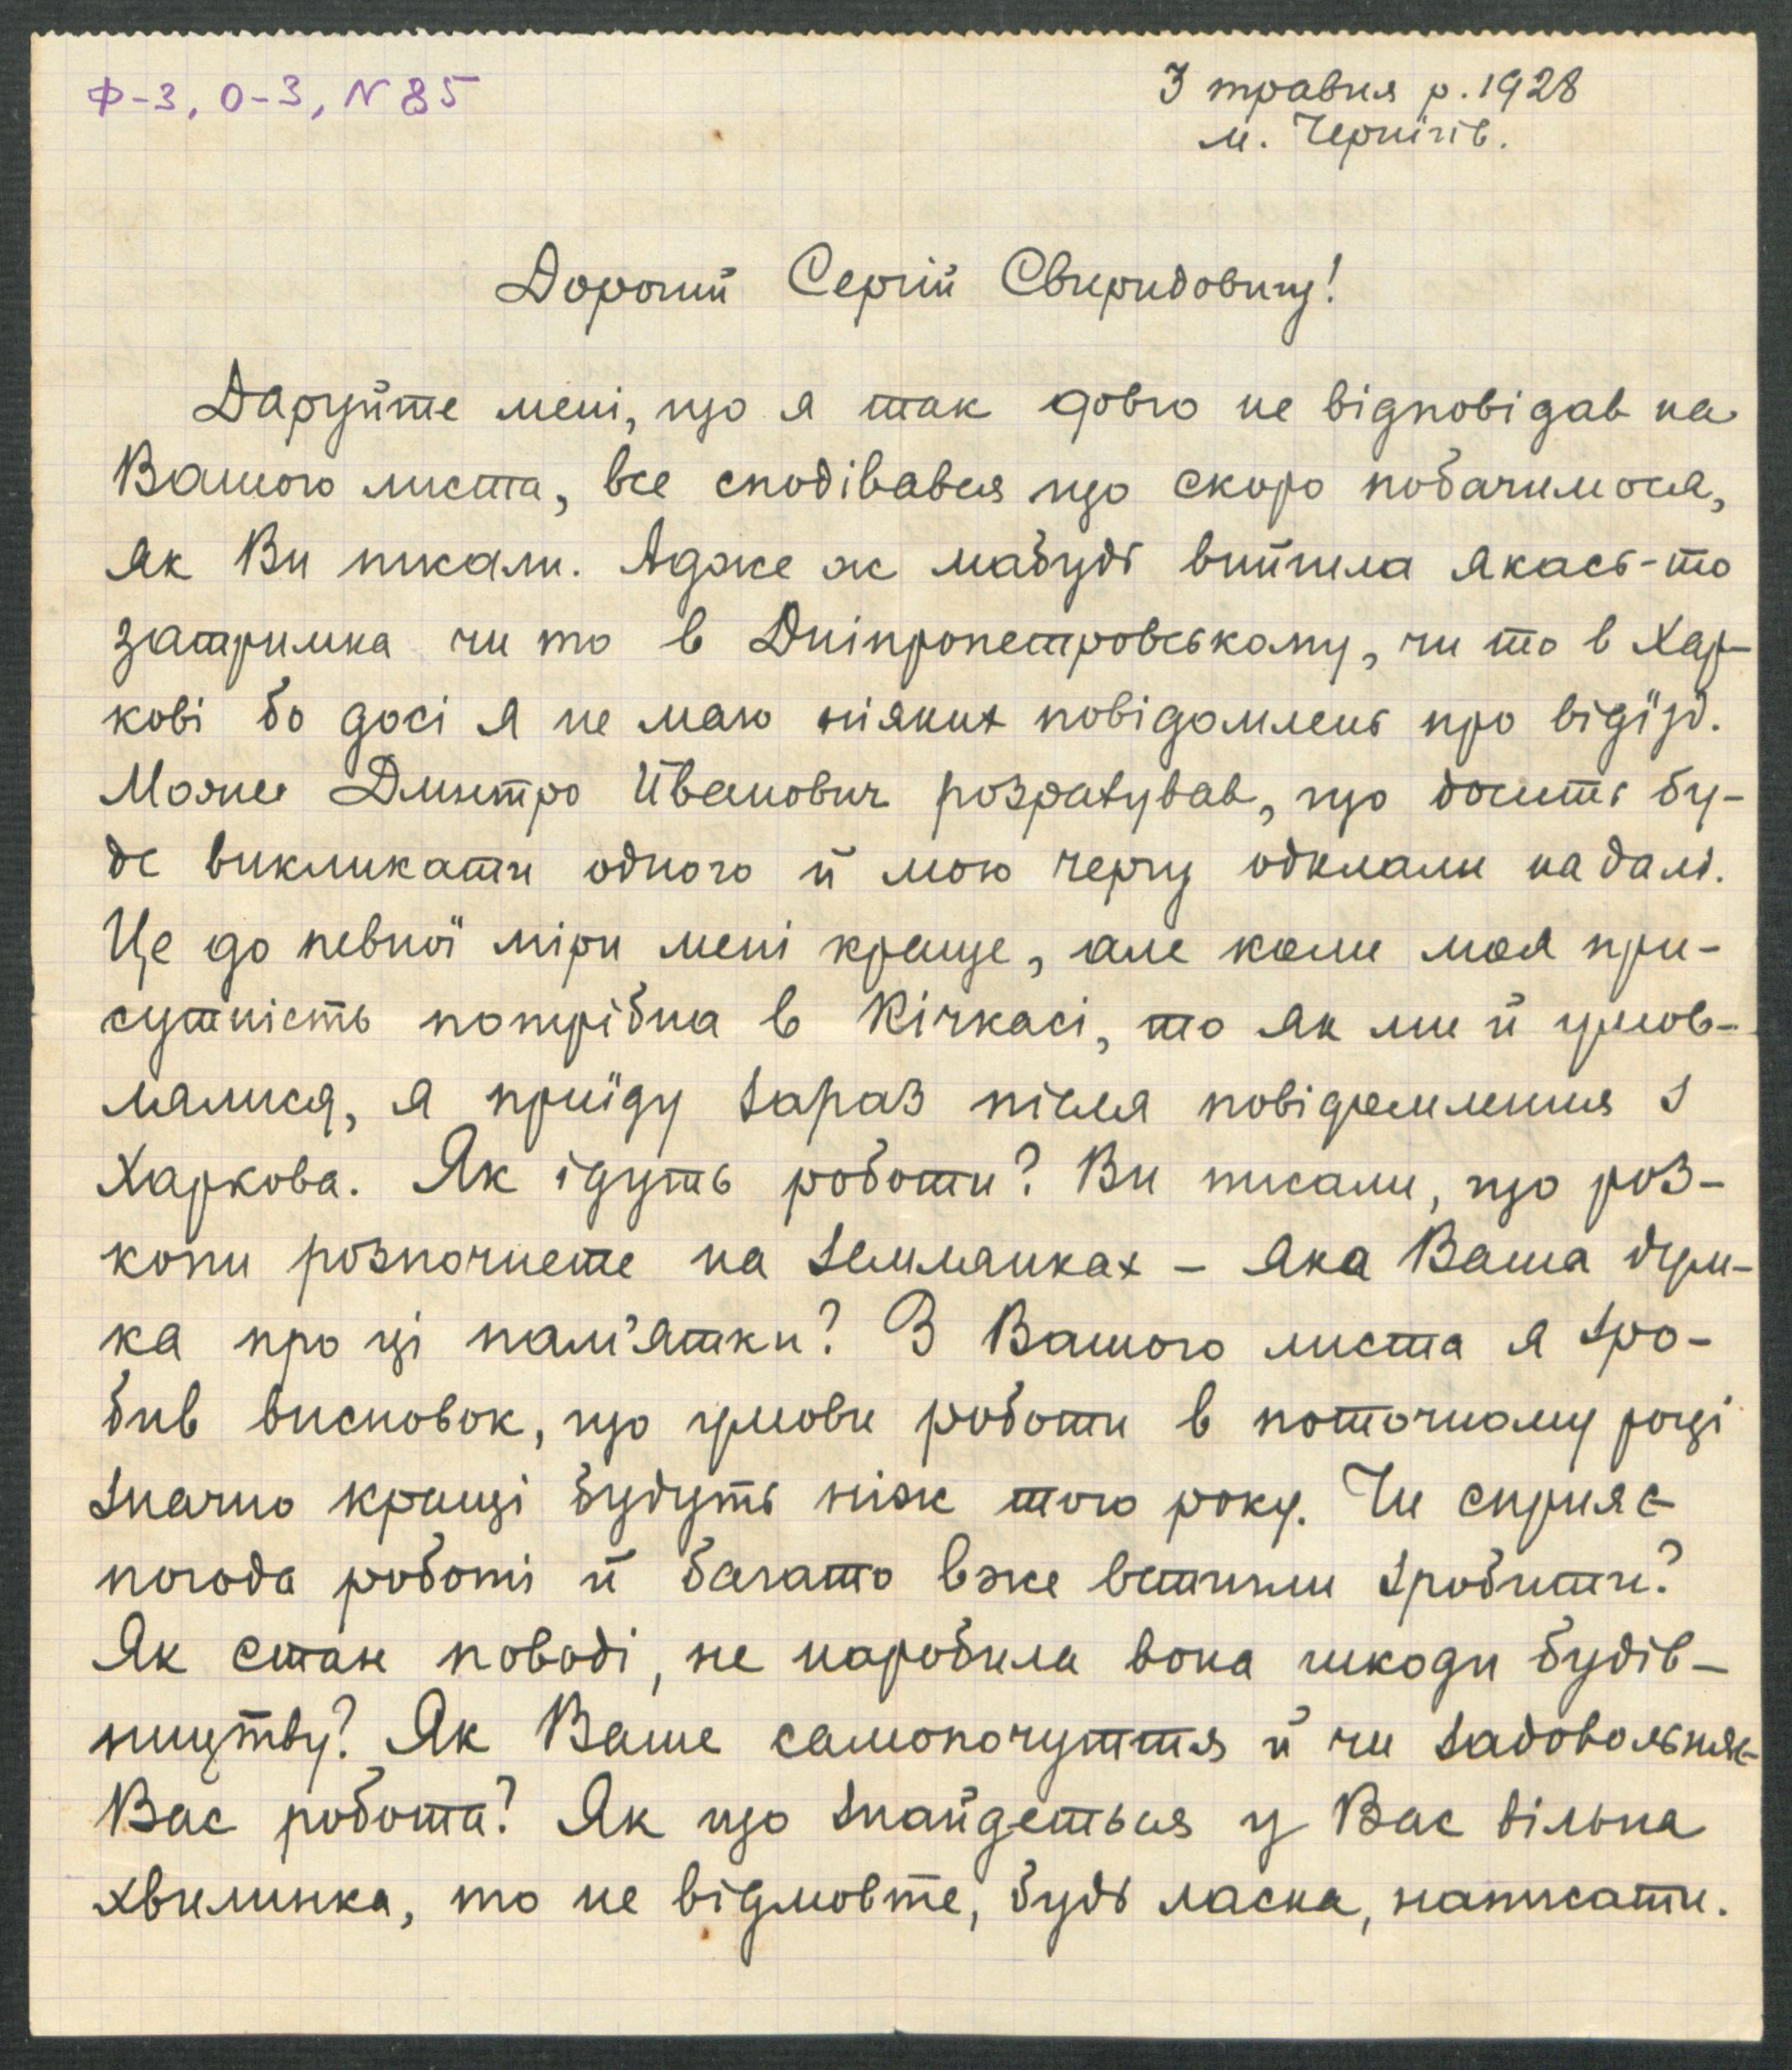 Ф-3, О-3, N 85
3 травня р. 1928
м. Чернігів.
Дорогий Сергій Свиридовичу!
Даруйте мені, що я так довго не відповідав на
Вашого листа, все сподівався що скоро побачимося,
як Ви писали. Адже ж мабудь вийшла якась-то
затримка чи то в Дніпропетровському, чи то в Хар-
кові бо досі я не маю ніяких повідомлень про відїзд.
Може Дмитро Іванович розрахував, що досить бу-
де викликати одного й мою чергу одклали на далі.
Це до певної міри мені краще, але коли моя при-
сутність потрібна в Кічкасі, то як ми й умов-
лялися, я приїду зараз після повідомлення з
Харкова. Як ідуть роботи? Ви писали, що роз-
копи розпочнете на землянках – яка Ваша дум-
ка про ці пам'ятки? З Вашого листа я зро-
бив висновок, що умови роботи в поточному році
значно кращі будуть ніж того року. Чи сприяє
погода роботі й багато вже встигли зробити?
Як стан поводі, не наробила вона шкоди будів-
ництву? Як Ваше самопочуття й чи задовольняє
Вас робота? Як що знайдеться у Вас вільна
хвилинка, то не відмовте, будь ласка, написати.